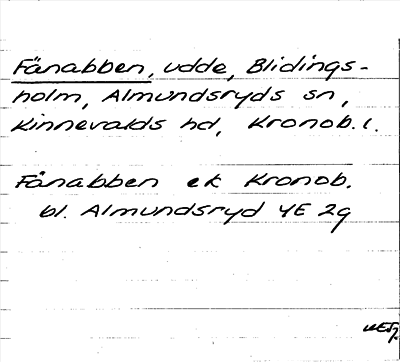 Fånabben, udde, Blidings-
holm, Almundsryds sn,
Kinnevalds hd, Kronob. l.
Fånabben ek Kronob.
bl. Almundsryd 4E 2g